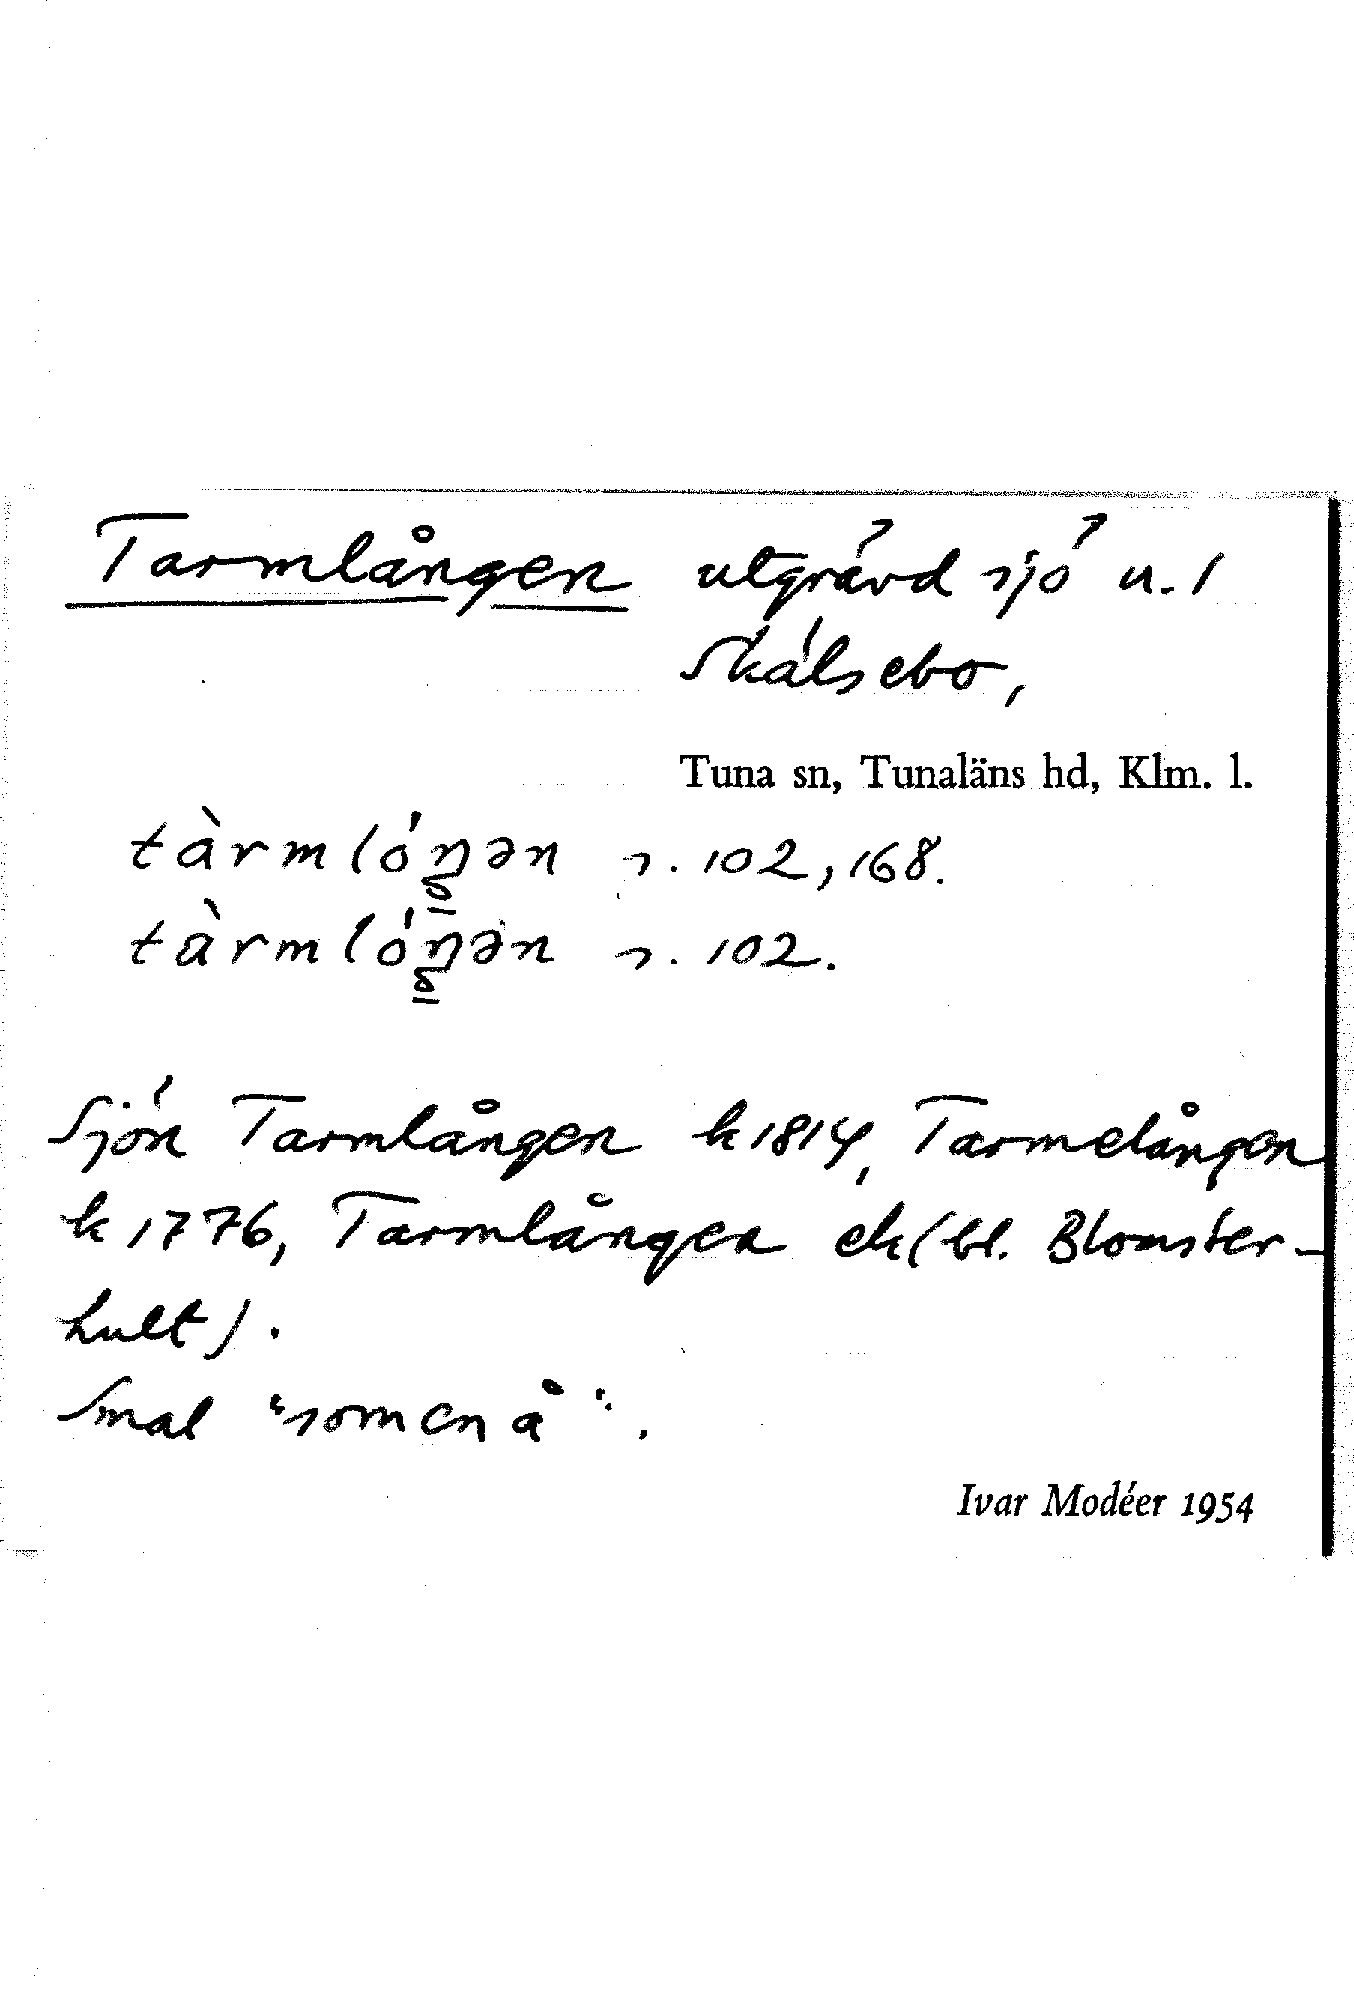 Tarmlången utgrävd sjö u. 1
Skälsebo,
Tuna sn, Tunaläns hd, Klm. l.
tàrmlóŋən s. 102, 168.
tàrmlóŋən s. 102.
Sjön Tarmlången k 1814, Tarmelången
k 1776, Tarmlången ek (bl. Blomster-
hult).
Smal "som en å".
Ivar Modéer 1954